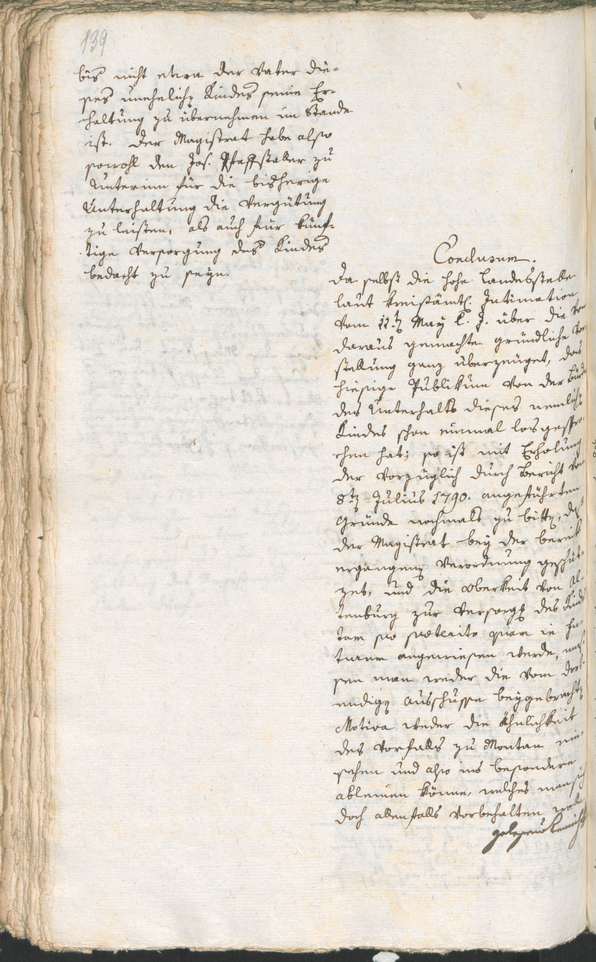 139
bis nicht etwa der Vater die-
ses unehelichen Kindes seine Er-
haltung zu übernehmen im Stande
ist. Der Magistrat habe also
sowohl den Jos. Pfaffstaller zu
Unterinn für die bisherige
Unterhaltung die Vergütung
zu leisten, als auch für künf-
tige Versorgung des Kindes
bedacht zu seyn.
Conclusum.
Da selbst die hohe Landesstelle
laut kreisämtl. Intimation
vom 11ten May l. J. über die
daraus gemachte gründliche Vor
stellung ganz überzeuget, das
hiesige Publikum von der Bürde
des Unterhalts dieses nemlichen
Kindes schon einmal losgespro
chen hat; so ist mit Erholung
der vorzüglich durch Bericht vom
8ten Julius 1790. angeführten
Gründe nochmals zu bitten, daß
der Magistrat bey der bereits
ergangenen Verordnung geschü-
zet, und die Obrkeit von Al-
tenburg zur Versorgg des Kindes
tam pro praeterito quam in fu
turum angewiesen werde,
sen man weder die vom dor-
tigen Ausschusse beygebrachten
Motiva weder die Ähnlichkeit
des Vorfalls zu Montan ein-
sehen und also ins besondere
ableinen könne, welches man sich
doch allenfalls vorbehalten wolle